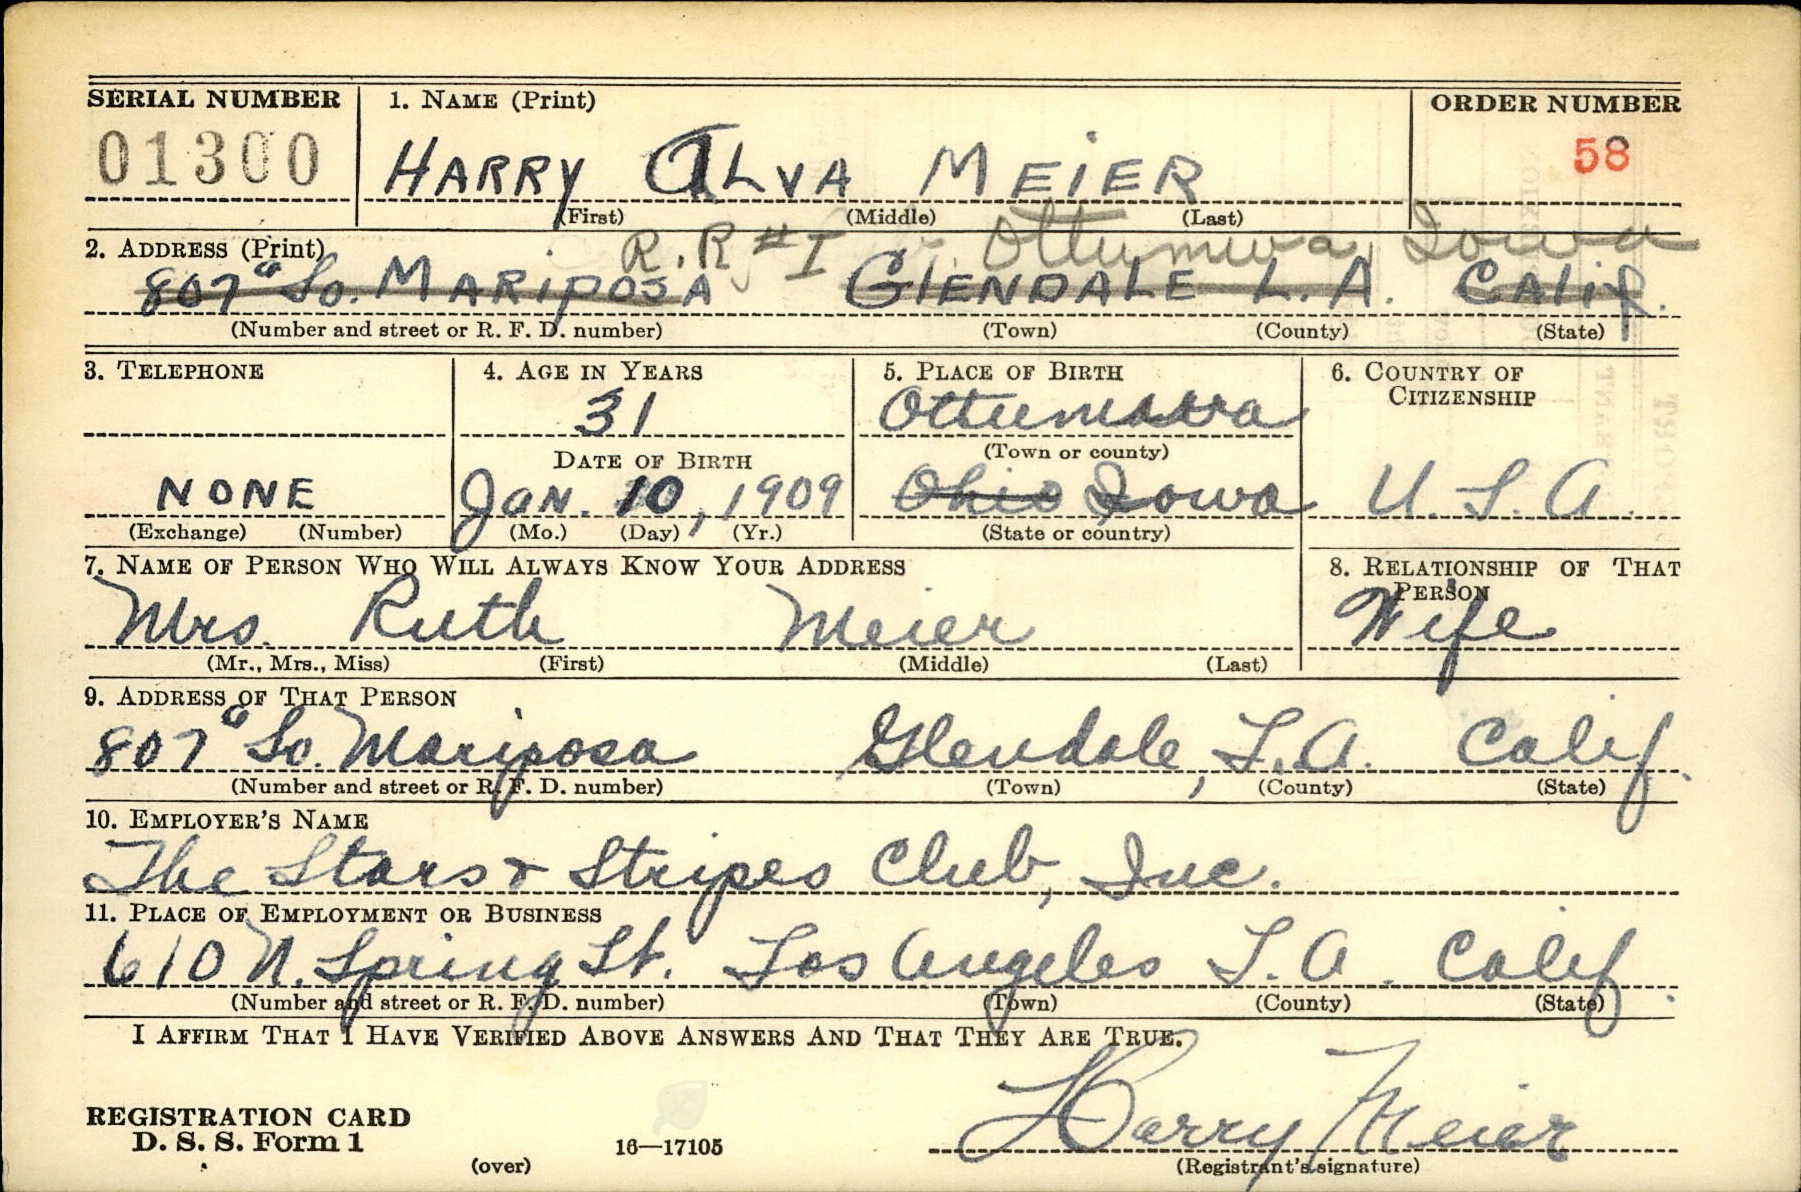 SERIAL NUMBER 1. NAME (Print) ORDER NUMBER
01300 HARRY ALVA MEIER 58
(First) (Middle) (Last)
2. ADDRESS (Print) R.R #1 Ottumwa, Iowa
807a So. MARIPOSA GLENDALE L.A. CALIF.
(Number and street or R. F. D. number) (Town) (County) (State)
3. TELEPHONE 4. AGE IN YEARS 5. PLACE OF BIRTH 6. COUNTRY OF
CITIZENSHIP
31 Ottumwa
DATE OF BIRTH (Town or county)
NONE Jan. 10, 1909 Ohio Iowa U.S.A.
(Exchange) (Number) (Mo.) (Day) (Yr.) (State or country)
7. NAME OF PERSON WHO WILL ALWAYS KNOW YOUR ADDRESS 8. RELATIONSHIP OF THAT
PERSON
Mrs. Ruth Meier Wife
(Mr., Mrs., Miss) (First) (Middle) (Last)
9. ADDRESS OF THAT PERSON
807a So. Mariposa Glendale, L.A. Calif.
(Number and street or R. F. D. number) (Town) (County) (State)
10. EMPLOYER'S NAME
The Stars & Stripes Club, Inc.
11. PLACE OF EMPLOYMENT OR BUSINESS
610 N. Spring St. Los Angeles L.A. Calif.
(Number and street or R. F. D. number) (Town) (County) (State)
I AFFIRM THAT I HAVE VERIFIED ABOVE ANSWERS AND THAT THEY ARE TRUE.
REGISTRATION CARD
D. S. S. Form 1 16—17105 Harry Meier
(over) (Registrant's signature)